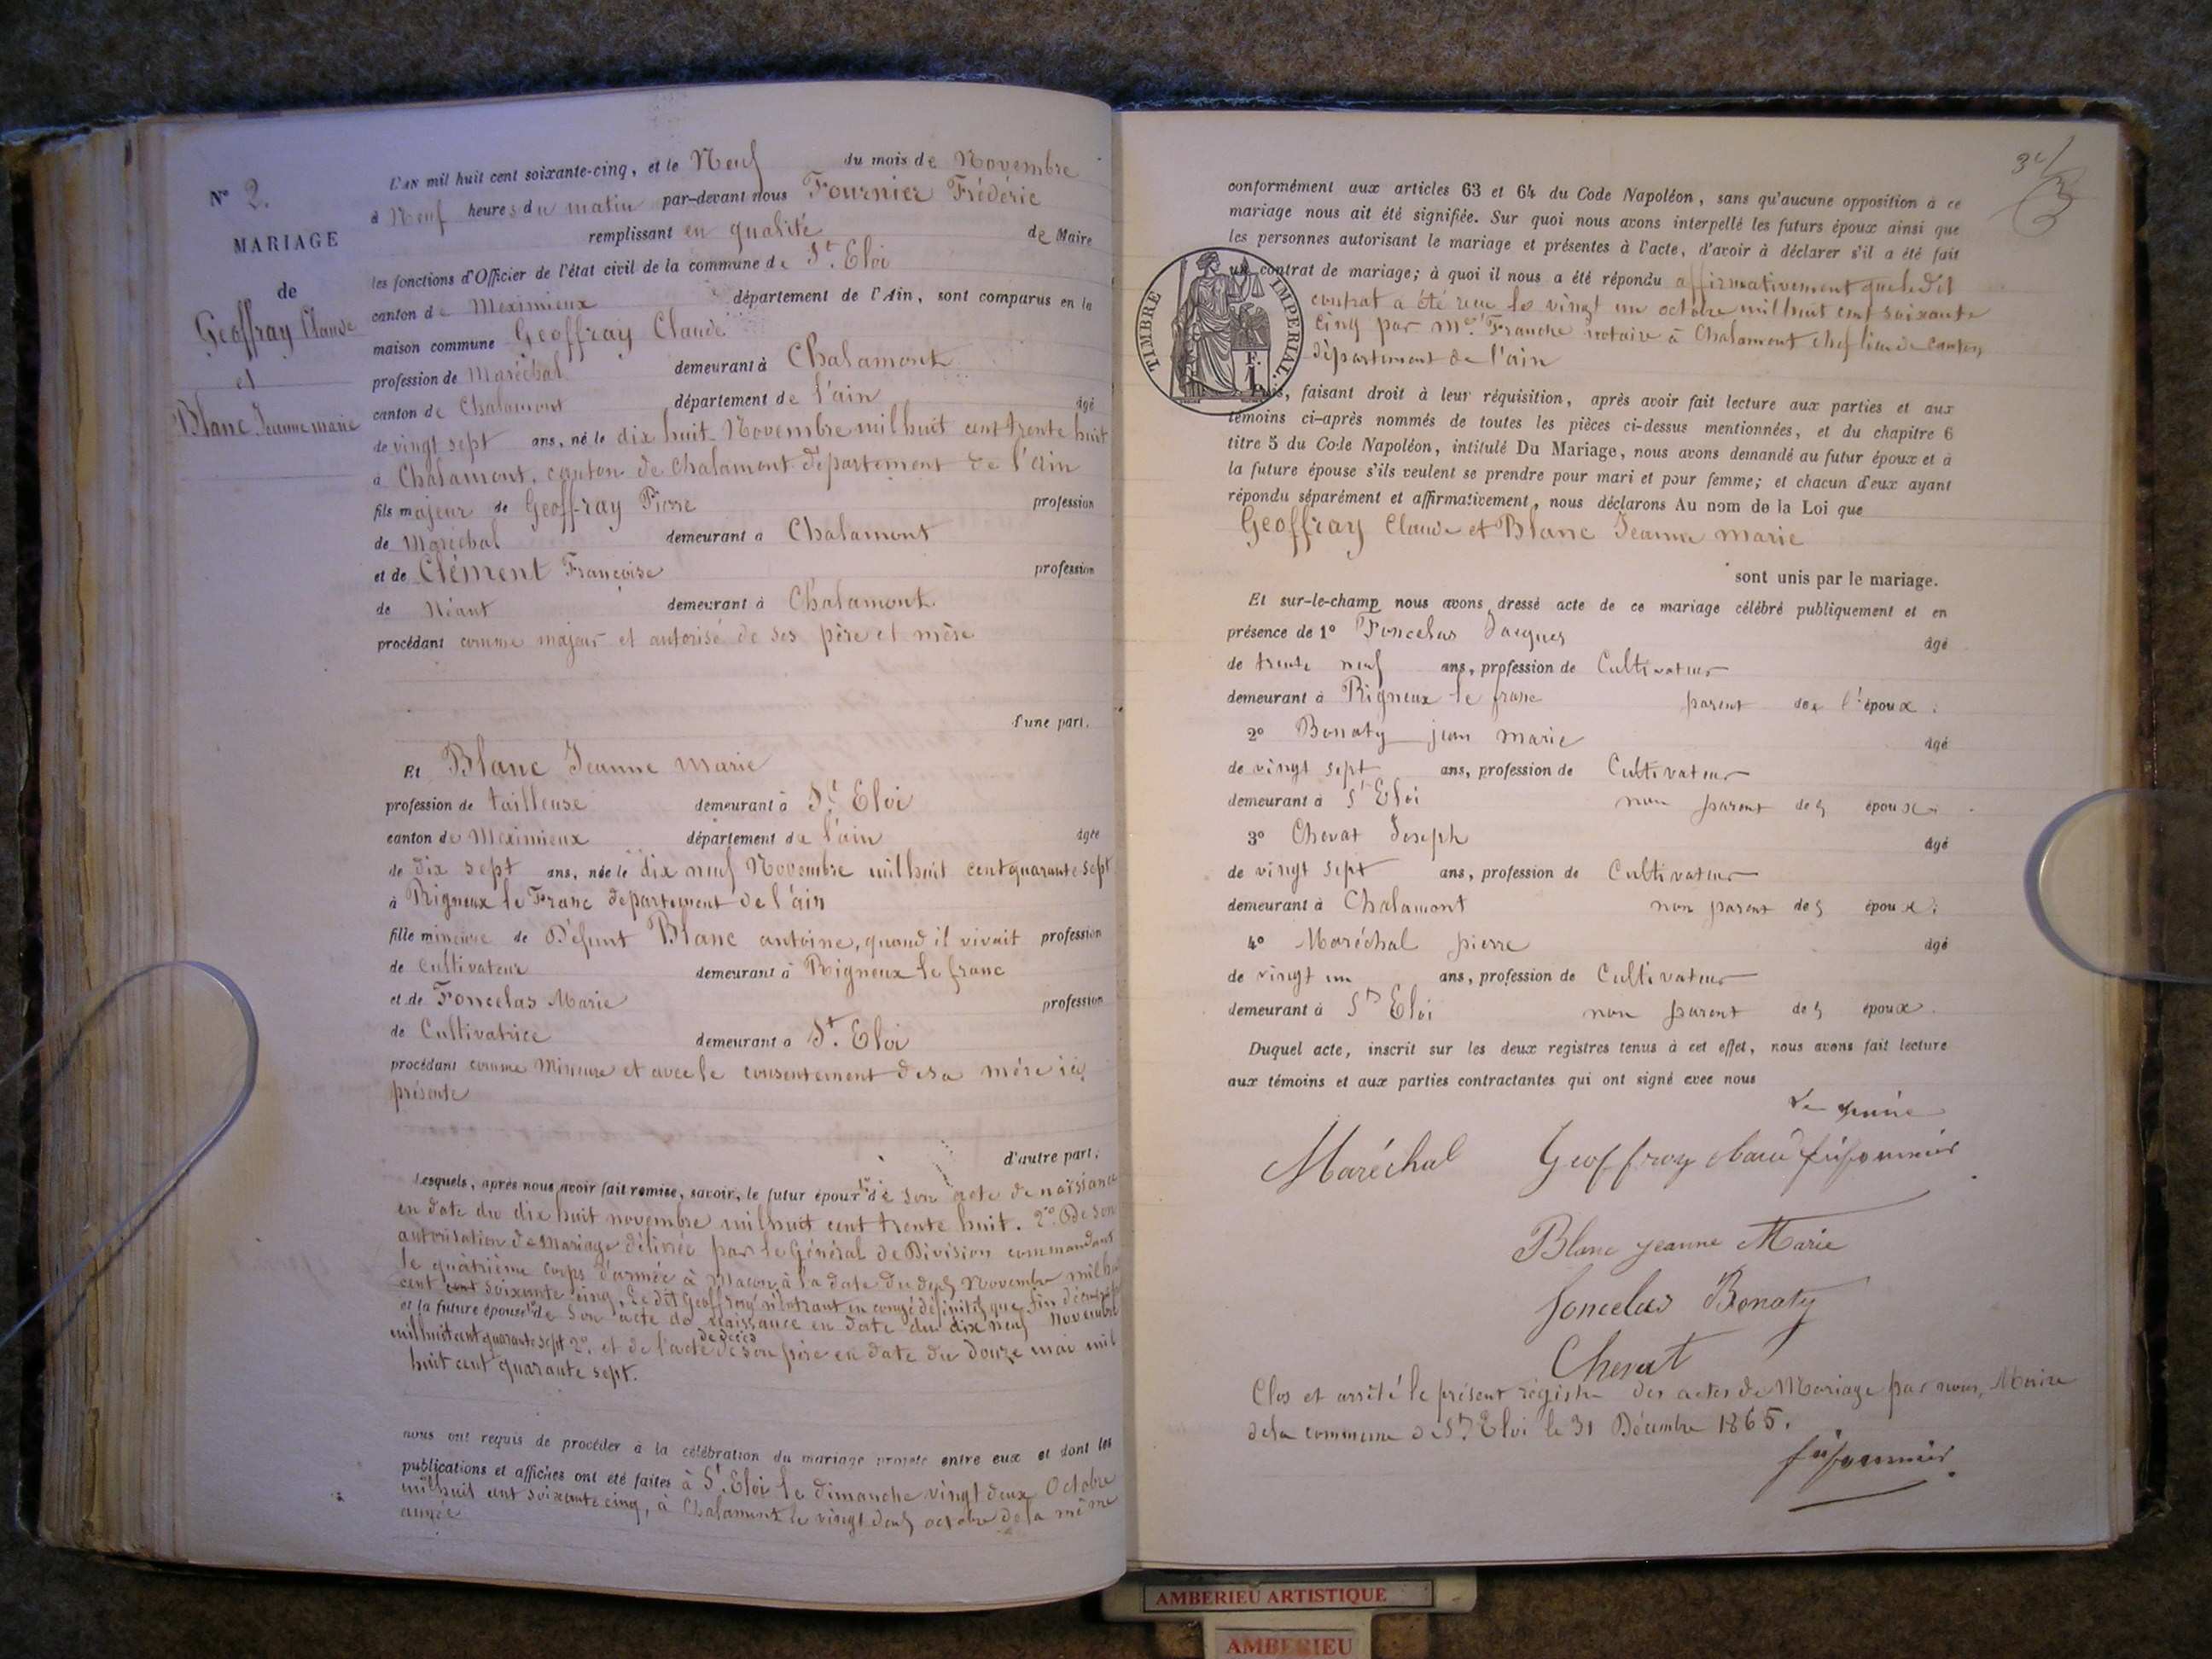 N° 2.
MARIAGE
de
Geoffray Claude
et
Blanc Jeanne marie
L'AN mil huit cent soixante-cinq, et le Neuf du mois de Novembre
à Neuf heures du matin par-devant nous Fournier Frédéric
remplissant en qualité de Maire
les fonctions d'Officier de l'état civil de la commune de St. Eloi
canton de Meximieux département de l'Ain, sont comparus en la
maison commune Geoffray Claude
profession de Maréchal demeurant à Chalamont
canton de Chalamont département de l'ain âgé
de vingt sept ans, né le dix huit Novembre mil huit cent trente huit
à Chalamont, canton de Chalamont département de l'Ain
fils majeur de Geoffray Pierre profession
de Maréchal demeurant à Chalamont
et de Clément Françoise profession
de Néant demeurant à Chalamont
procédant comme majeur et autorisé de ses père et mère
d'une part.
Et Blanc Jeanne marie
profession de tailleuse demeurant à St. Eloi
canton de Meximieux département de l'ain âgée
de dix sept ans, née le dix neuf Novembre mil huit cent quarante sept
à Rigneux le Franc département de l'ain
fille mineure de Défunt Blanc antoine, quand il vivait profession
de Cultivateur demeurant à Rigneux le franc
et de Foncelas Marie profession
de Cultivatrice demeurant à St. Eloi
procédant comme Mineure et avec le consentement de sa mère ici
présente
d'autre part.
Lesquels, après nous avoir fait remise, savoir, le futur époux 1° de son acte de naissance
en date du dix huit novembre mil huit cent trente huit. 2° De son
autorisation de mariage délivrée par le Général de Division commandant
le quatrième corps d'armée à Macon à la date du deux Novembre mil huit
cent cent soixante cinq, Le dit Geoffray n'entrant en congé définitif que fin décembre
et la future épouse 1° de son acte de naissance en date du dix neuf Novembre
mil huit cent quarante sept 2°. et de l'acte de décès de son père en date du douze mai mil
huit cent quarante sept.
nous ont requis de procéder à la célébration du mariage projeté entre eux et dont les
publications et affiches ont été faites à St. Eloi le dimanche vingt deux Octobre
mil huit cent soixante cinq, à Chalamont le vingt deux octobre de la même
année
conformément aux articles 63 et 64 du Code Napoléon, sans qu'aucune opposition à ce
mariage nous ait été signifiée. Sur quoi nous avons interpellé les futurs époux ainsi que
les personnes autorisant le mariage et présentes à l'acte, d'avoir à déclarer s'il a été fait
un contrat de mariage; à quoi il nous a été répondu affirmativement que le dit
contrat a été reçu le vingt un octobre mil huit cent soixante
cinq par me. Franche notaire à Chalamont chef lieu de canton
département de l'ain
TIMBRE IMPERIAL.
Puis, faisant droit à leur réquisition, après avoir fait lecture aux parties et aux
témoins ci-après nommés de toutes les pièces ci-dessus mentionnées, et du chapitre 6
titre 5 du Code Napoléon, intitulé Du Mariage, nous avons demandé au futur époux et à
la future épouse s'ils veulent se prendre pour mari et pour femme; et chacun d'eux ayant
répondu séparément et affirmativement, nous déclarons Au nom de la Loi que
Geoffray Claude et Blanc Jeanne marie
sont unis par le mariage.
Et sur-le-champ nous avons dressé acte de ce mariage célébré publiquement et en
présence de 1° Foncelas Jacques âgé
de trente neuf ans, profession de Cultivateur
demeurant à Rigneux le franc parent de l'époux.
2° Bonaty jean marie âgé
de vingt sept ans, profession de Cultivateur
demeurant à St Eloi non parent des époux.
3° Chevat Joseph âgé
de vingt sept ans, profession de Cultivateur
demeurant à Chalamont non parent des époux.
4° Maréchal pierre âgé
de vingt un ans, profession de Cultivateur
demeurant à St Eloi non parent des époux.
Duquel acte, inscrit sur les deux registres tenus à cet effet, nous avons fait lecture
aux témoins et aux parties contractantes qui ont signé avec nous
Le maire
Maréchal Geoffray
Blanc jeanne Marie
foncelas Bonaty
Chevat
Clos et arrêté le présent régistre des actes de Mariage par nous, Maire
de la commune de St. Eloi le 31 Décembre 1865.
AMBERIEU ARTISTIQUE
AMBERIEU